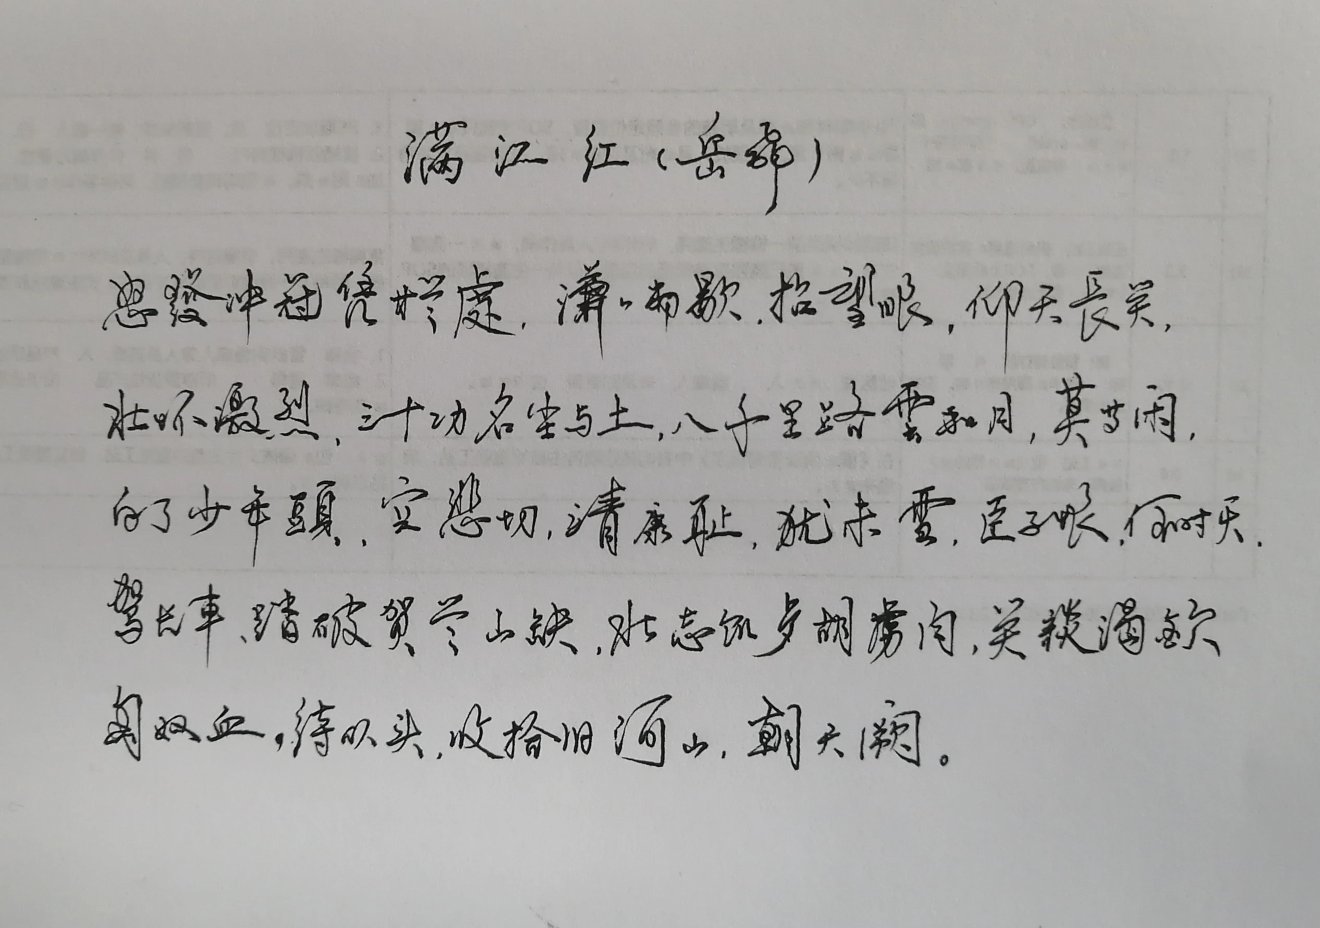 满江红(岳飛)
怒發冲冠凭栏處,潇々雨歇,抬望眼,仰天長笑,
壮怀激烈,三十功名尘与土,八千里路雲和月,莫等闲,
白了少年頭,空悲切,靖康耻,犹未雪,臣子恨,何时灭,
驾长車,踏破贺兰山缺,壮志飢歺胡虏肉,笑谈渴飲
匈奴血。待从头,收拾旧河山,朝天阙。